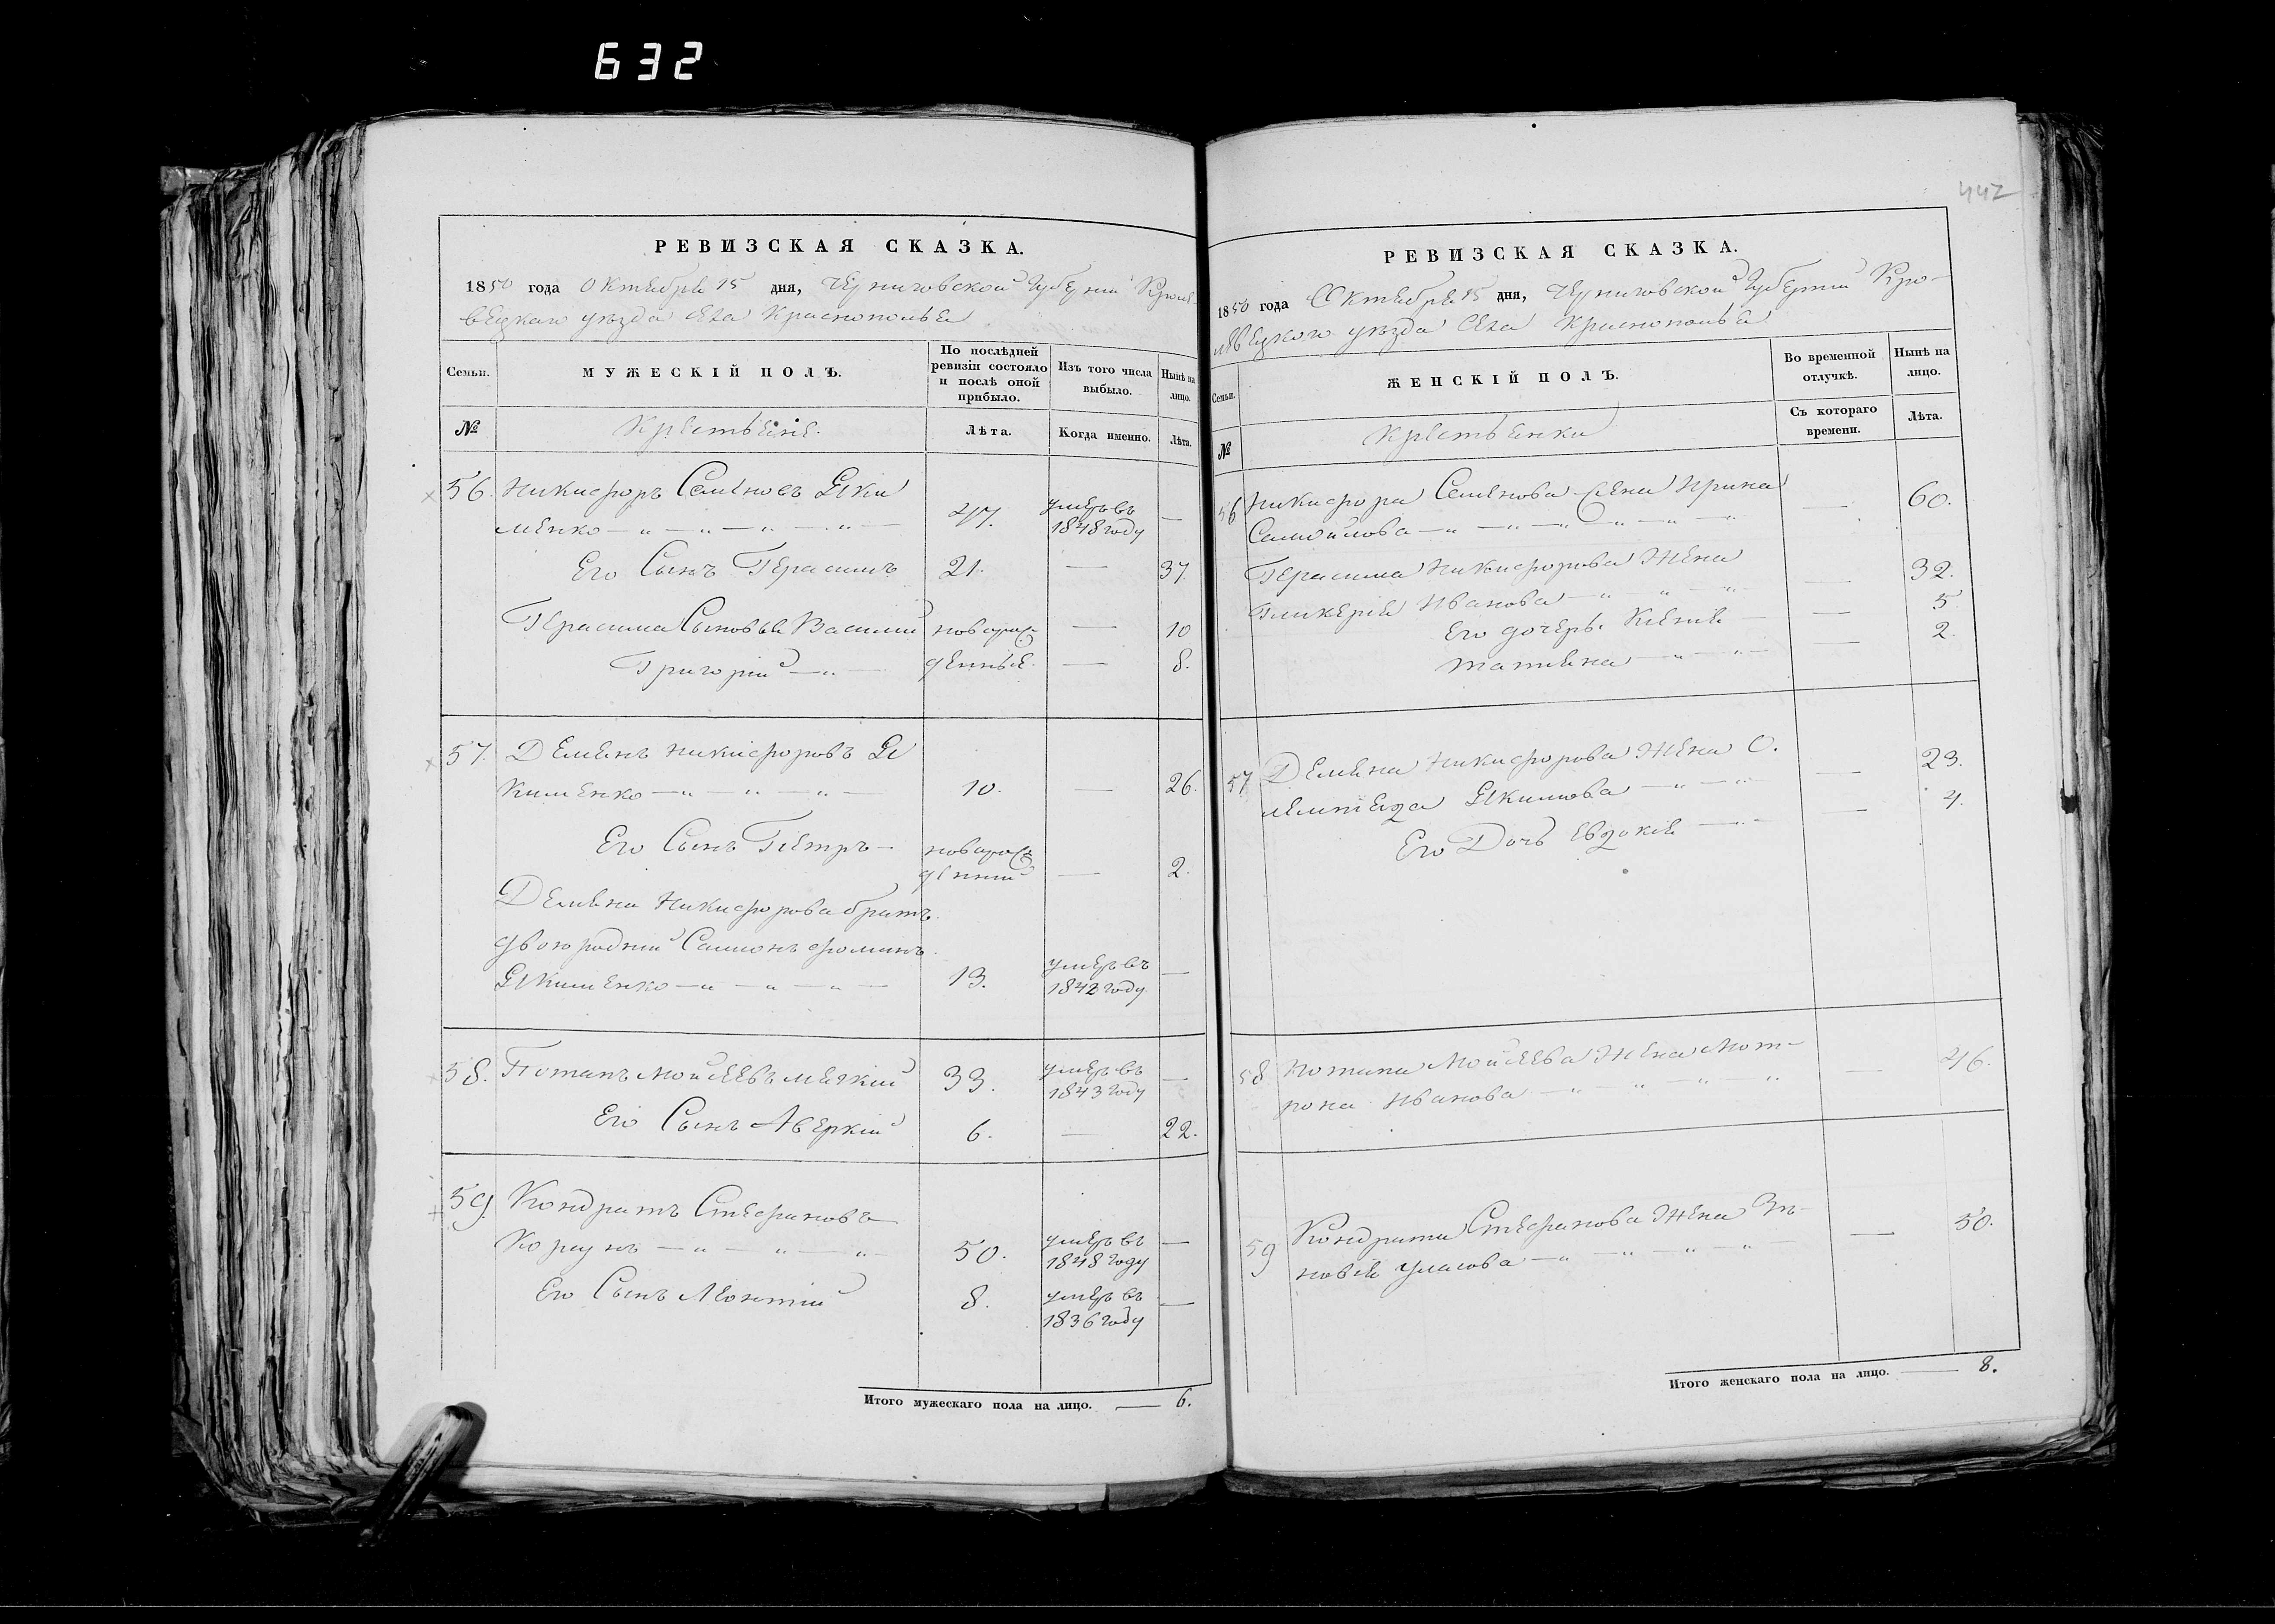 632
442
РЕВИЗСКАЯ СКАЗКА.
1850 года Октября 15 дня, Черниговской Губерніи Кроле-
вецкаго уѣзда Села Краснополья
Семьи.
МУЖЕСКІЙ ПОЛЪ.
По послѣдней
ревизіи состояло
и послѣ оной
прибыло.
Изъ того числа
выбыло.
Нынѣ на
лицо.
№
Крестьяне.
Лѣта.
Когда именно.
Лѣта.
56. Никифоръ Семеновъ Яки
менко — " — " — " — " — 47. умеръ въ 1848 году —
Его Сынъ Герасимъ 21. — 37.
Герасима Сыновья Василій новорож — 10
Григорій — " — денные. — 8.
57. Деменъ Никифоровъ Я
кименко — " — " — " — 10. — 26.
Его Сынъ Петръ — новорож
денный — 2.
Демена Никифорова братъ
двоюродный Самсонъ Фоминъ
Якименко — " — " — " — 13. умеръ въ 1842 году —
58. Потапъ Мойсеевъ Мяхкій 33. умеръ въ 1843 году —
Его Сынъ Аверкій 6. — 22.
59. Кондратъ Стефановъ
Коржунъ — " — " — " — 50. умеръ въ 1848 году —
Его Сынъ Леонтій 8. умеръ въ 1836 году —
Итого мужескаго пола на лицо. — 6.
РЕВИЗСКАЯ СКАЗКА.
1850 года Октября 15 дня, Черниговской Губерніи Кро-
левецкого уѣзда Села Краснополья
Семьи.
ЖЕНСКІЙ ПОЛЪ.
Во временной
отлучкѣ.
Нынѣ на
лицо.
№
Крестьянки
Съ котораго
времени.
Лѣта.
56 Никифора Семенова Жена Ирина
Самойлова — " — " — " — " — " — 60.
Герасима Никифорова Жена
Гликерія Иванова — " " " — 32.
Его дочерь. Ксенія — — 5
Татьяна — " — " — — 2.
57 Демена Никифорова Жена С.
Якимова — " — " — 23.
Его Дочь Евдокія — " — — 4.
58 Потапа Мойсеева Жена Мот-
рона Иванова — " " " " — 46.
59 Кондрата Стефанова Жена Зѣ-
новія Уласова — " — " " — " — 50.
Итого женскаго пола на лицо. — 8.